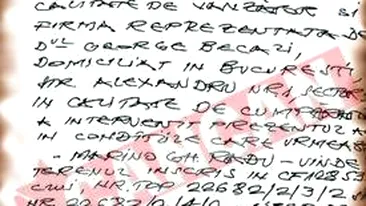 CALITATE DE VANZATOR SI
FIRMA REPREZENTATA DE
DUL GEORGE BECALI,
DOMICILIAT IN BUCURESTI,
STR ALEXANDRU NR 1, SECTOR
IN CALITATE DE CUMPARATOR
A INTERVENIT PREZENTUL
IN CONDITIILE CARE URMEAZA
- MARINO GH. RADU - VINDE
TERENUL INSCRIS IN CF 12853
CLUJ, NR. TOP 22682/2/3/2
NR 22682/0/4/0